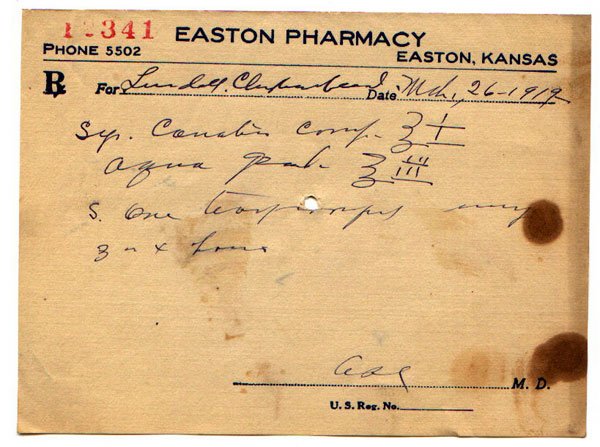 341
EASTON PHARMACY
PHONE 5502
EASTON, KANSAS
℞ For Date Mch, 26-1919
Syr. comp. ℥ I
aqua ℥ III
S. One teaspoonful every
3 or 4 hours
M. D.
U. S. Reg. No.